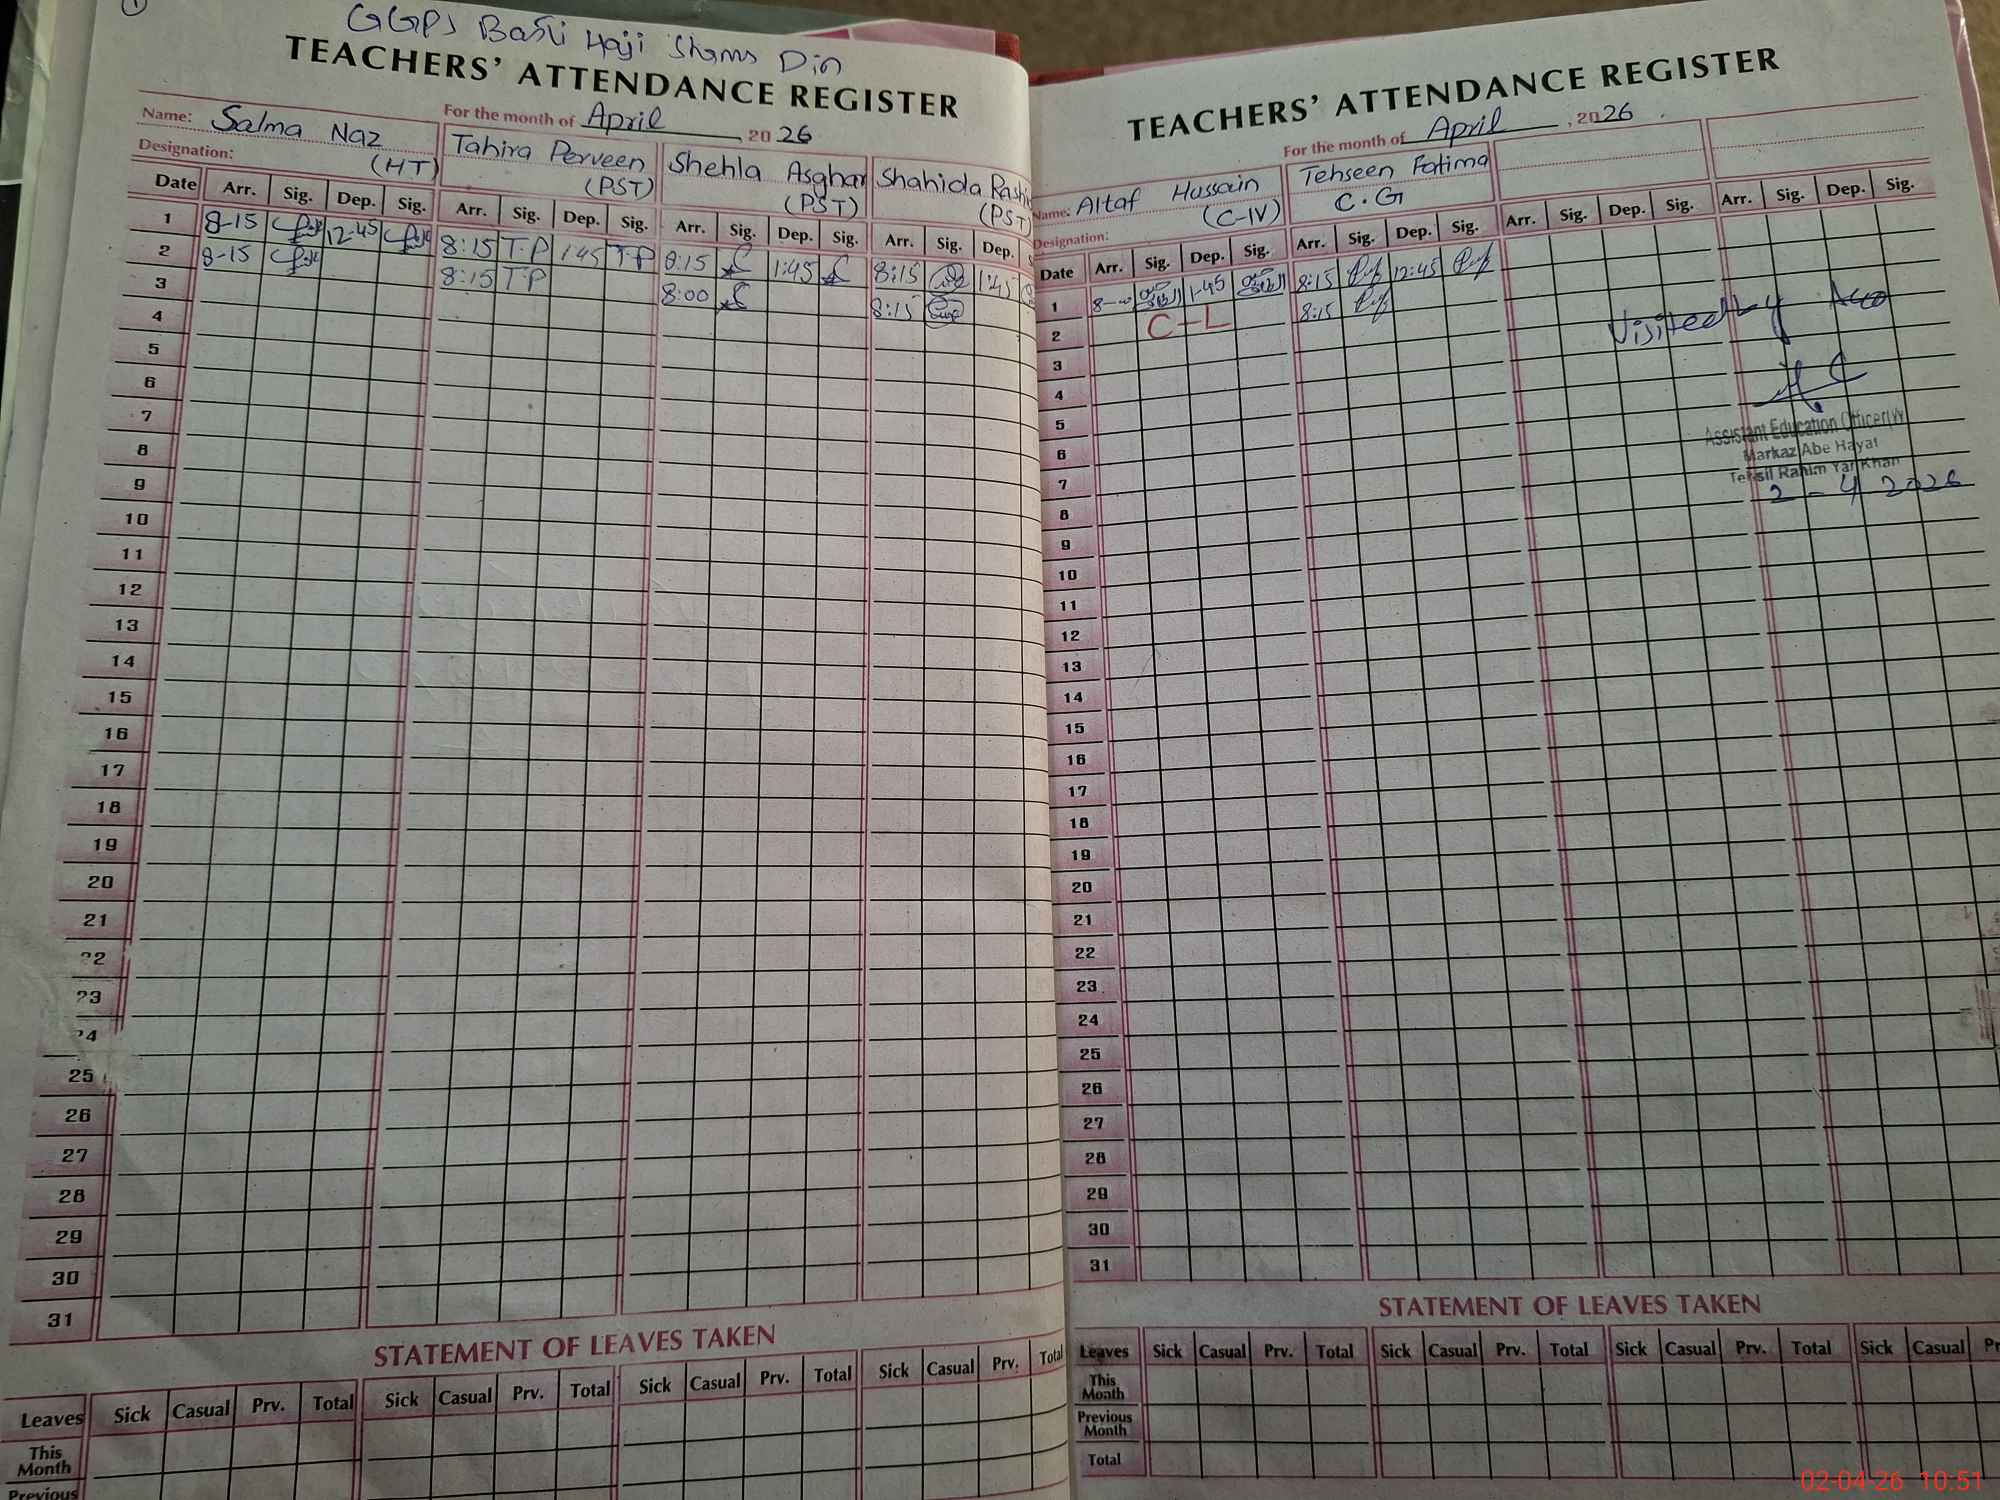 1
GGPS Basti Haji Shams Din
TEACHERS' ATTENDANCE REGISTER
For the month of April 2026
Name: Salma Naz
Designation: (HT)
Tahira Perveen
(PST)
Shehla Asghar
(PST)
Shahida Rashi
(PST)
Date Arr. Sig. Dep. Sig. Arr. Sig. Dep. Sig. Arr. Sig. Dep. Sig. Arr. Sig. Dep.
1 8-15 12-45 8:15 T-P 1:45 T-P 8:15 1:45 8:15 1:45
2 8-15 8:15 T-P 8:00 8:15
3
4
5
6
7
8
9
10
11
12
13
14
15
16
17
18
19
20
21
22
23
24
25
26
27
28
29
30
31
STATEMENT OF LEAVES TAKEN
Leaves Sick Casual Prv. Total Sick Casual Prv. Total Sick Casual Prv. Total Sick Casual Prv. Total
This Month
Previous
TEACHERS' ATTENDANCE REGISTER
For the month of April, 2026
Name: Altaf Hussain
Designation: (C-IV)
Tehseen Fatima
C.G
Date Arr. Sig. Dep. Sig. Arr. Sig. Dep. Sig. Arr. Sig. Dep. Sig. Arr. Sig. Dep. Sig.
1 1-45 8:15 12:45
2 C-L 8:15
3
4
5
6
7
8
9
10
11
12
13
14
15
16
17
18
19
20
21
22
23
24
25
26
27
28
29
30
31
Visited by AEO
Assistant Education Officer(W)
Markaz Abe Hayat
Tehsil Rahim Yar Khan
2-4 2026
STATEMENT OF LEAVES TAKEN
Leaves Sick Casual Prv. Total Sick Casual Prv. Total Sick Casual Prv. Total Sick Casual
This Month
Previous Month
Total
02-04-26 10:51